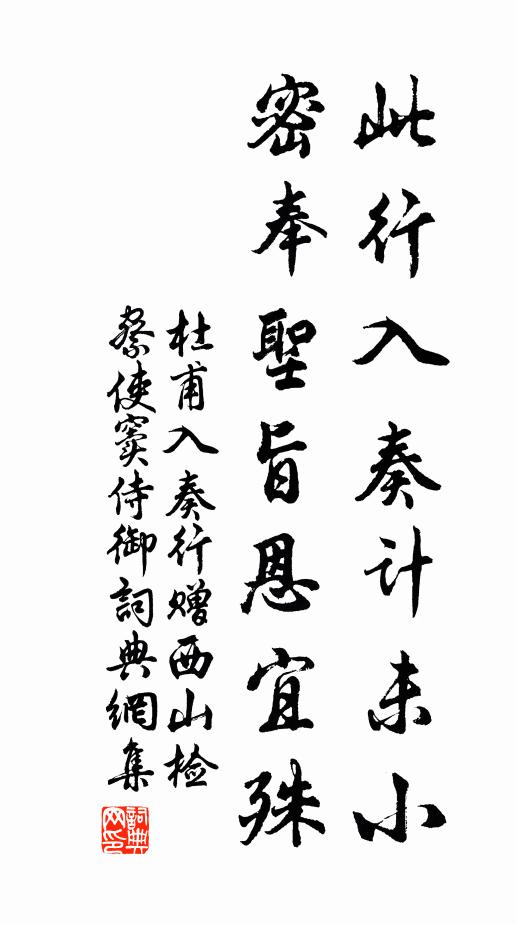 此行入奏计未小
密奉聖旨恩宜殊
杜甫入奏行赠西山检
察使窦侍御詞典網集
詞典网印